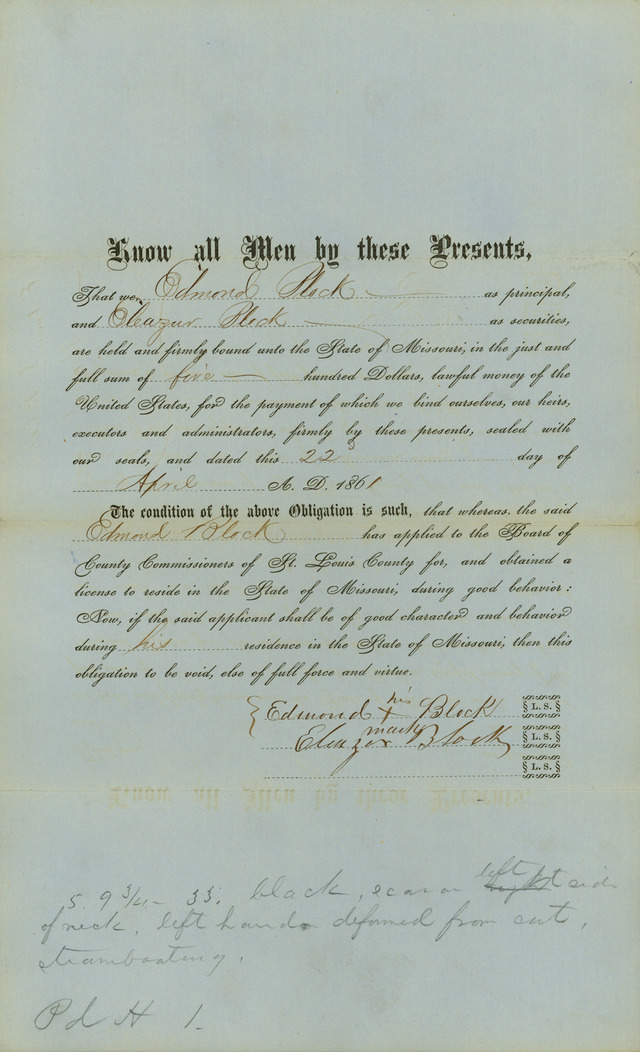 Know all Men by these Presents,
That we, Edmond Block as principal,
and Eleazur Block as securities,
are held and firmly bound unto the State of Missouri, in the just and
full sum of five hundred Dollars, lawful money of the
United States, for the payment of which we bind ourselves, our heirs,
executors and administrators, firmly by these presents, sealed with
our seals, and dated this 22 day of
April A. D. 1861
The condition of the above Obligation is such, that whereas the said
Edmond Block has applied to the Board of
County Commissioners of St. Louis County for, and obtained a
license to reside in the State of Missouri, during good behavior:
Now, if the said applicant shall be of good character and behavior
during his residence in the State of Missouri, then this
obligation to be void, else of full force and virtue.
his
Edmond + Block L. S.
mark
Eleazor Block L. S.
L. S.
left
5. 9 3/4 - 33. black, scar on right side
of neck, left hand deformed from cut,
steamboating.
Pd H 1.